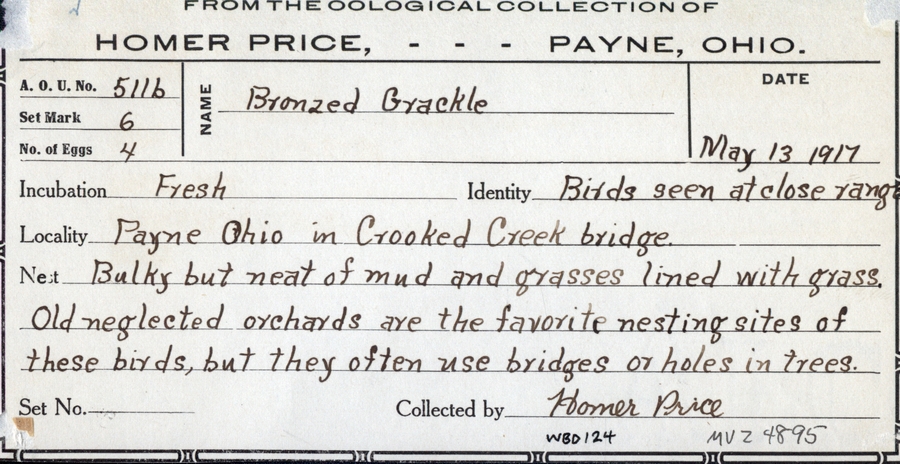 FROM THE OOLOGICAL COLLECTION OF
HOMER PRICE, - - - PAYNE, OHIO.
A. O. U. No. 511b
Set Mark 6
No. of Eggs 4
NAME Bronzed Grackle
DATE
May 13 1917
Incubation Fresh Identity Birds seen at close range
Locality Payne Ohio in Crooked Creek bridge.
Nest Bulky but neat of mud and grasses lined with grass.
Old neglected orchards are the favorite nesting sites of
these birds, but they often use bridges or holes in trees.
Set No. Collected by Homer Price
WBD124 MVZ 4895